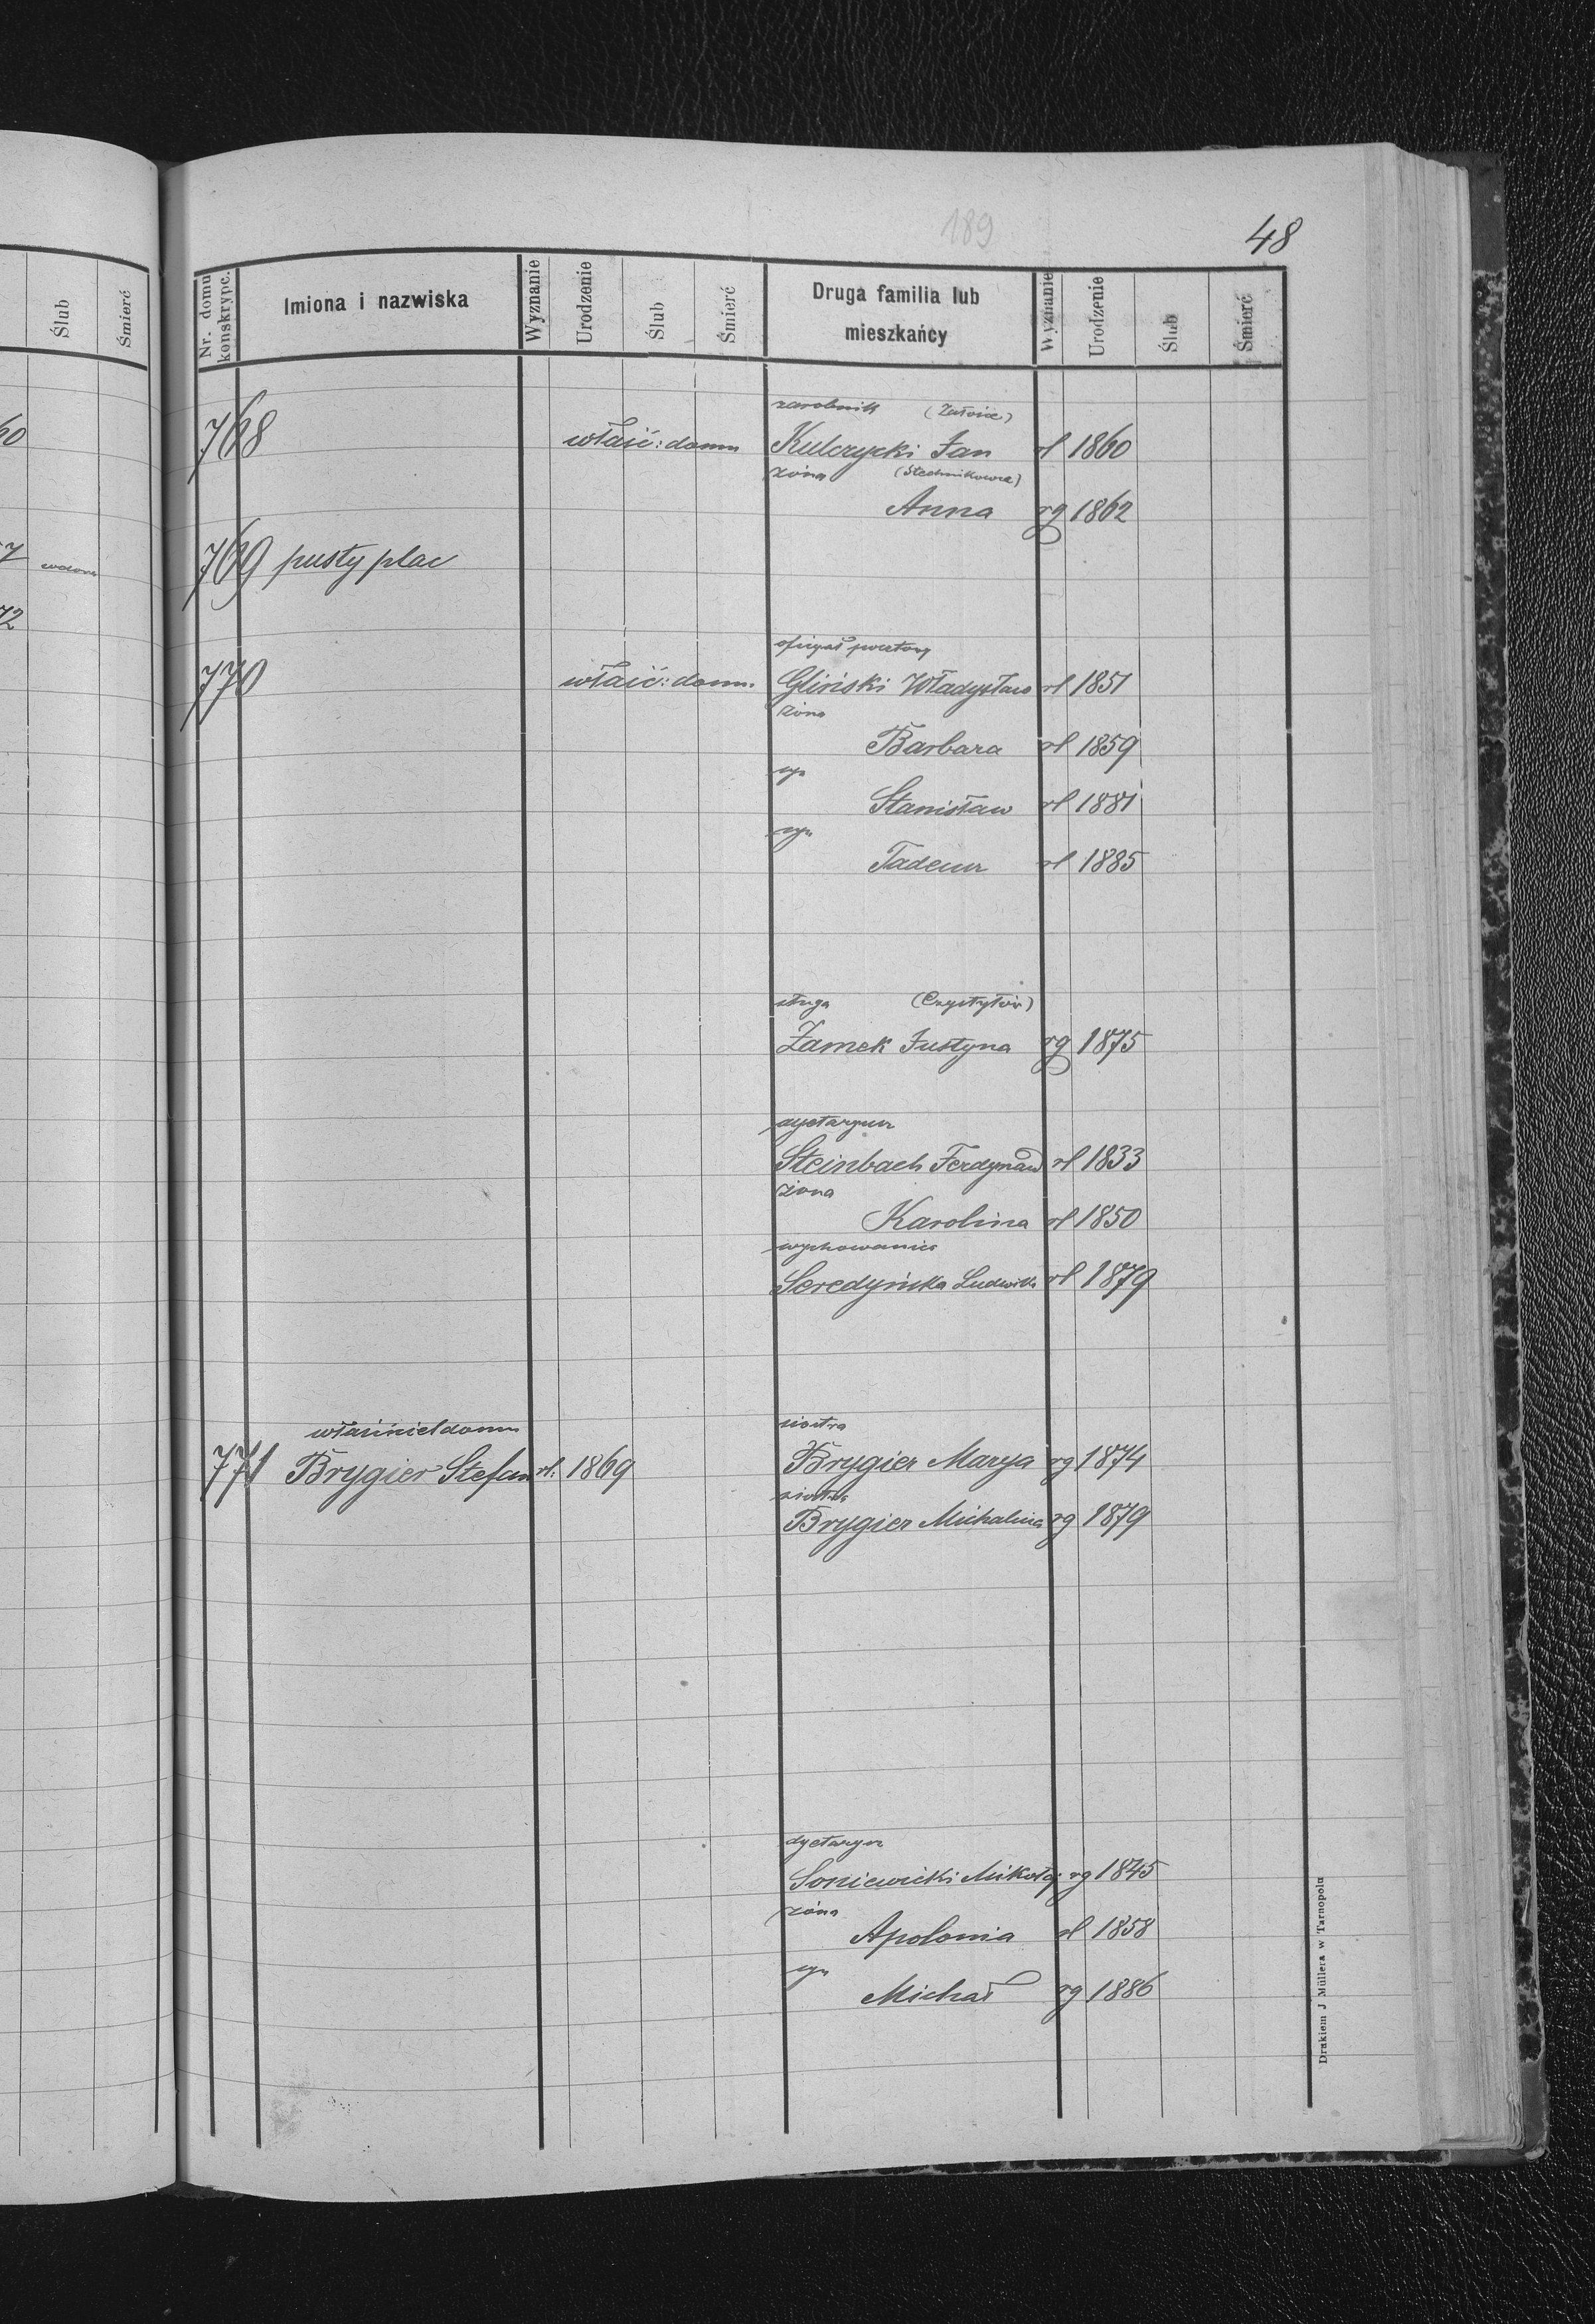 189
48
Ślub
Śmierć
Nr. domu konskrypc.
Imiona i nazwiska
Wyznanie
Urodzenie
Ślub
Śmierć
Druga familia lub mieszkańcy
Wyznanie
Urodzenie
Ślub
Śmierć
60
zarobnik (Załoźce)
768 właść: domu Kulczycki Jan rl 1860
żona
Anna rg 1862
769 pusty plac
72
oficyał pocztowy
770 właść: domu. Gliński Władysław rl 1851
żona
Barbara rl 1859
syn
Stanisław rl 1881
syn
Tadeusz rl 1885
sługa (Czystyłów)
Zamek Justyna rg 1875
dyetaryusz
Steinbach Ferdynand rl 1833
żona
Karolina rl 1850
wychowanica
Seredyńska Ludwika rl 1879
właściciel domu siostra
771 Brygier Stefan rl. 1869 Brygier Marya rg 1874
siostra
Brygier Michalina rg 1879
dyetaryusz
Soniewicki Mikołaj rg 1845
żona
Apolonia rl 1858
syn
Michał rg 1886
Drukiem J Müllera w Tarnopolu